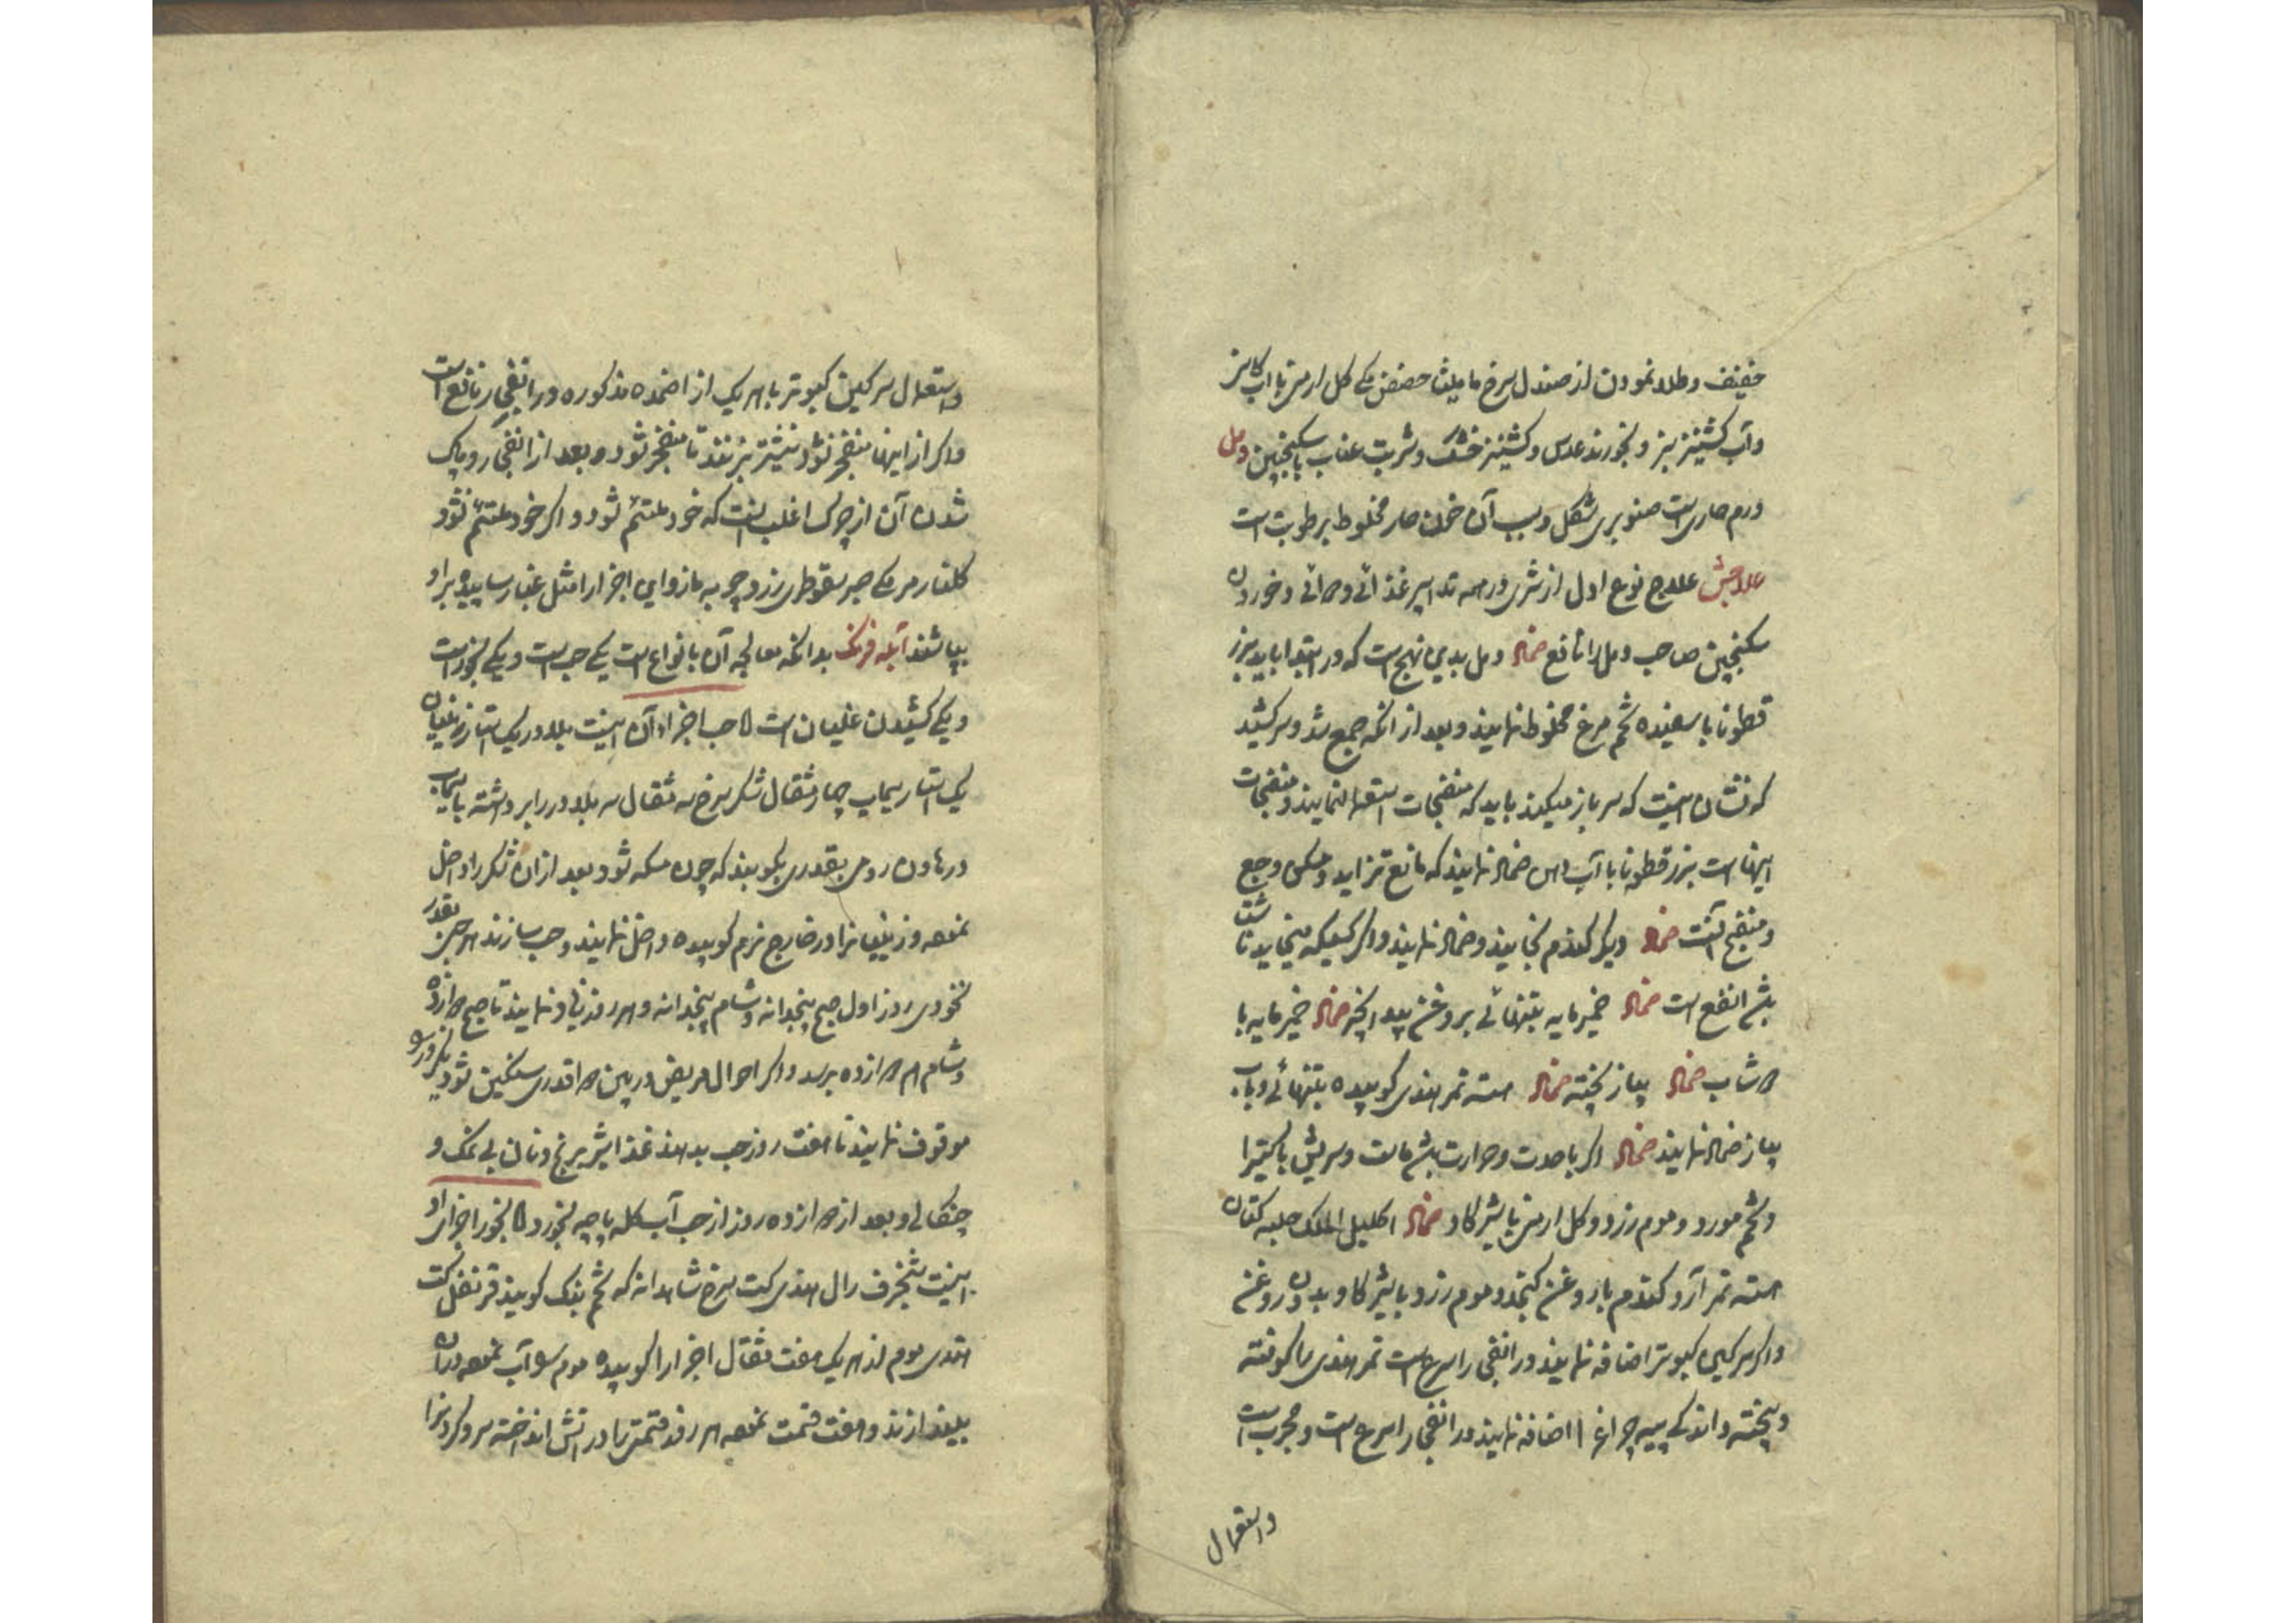 خفیف و طلا نمودن از صندل سرخ مامیثا حضض مکی گل ارمنی با آب کاسنی
و آب کشنیز سبز و بخورند عدس و کشنیز خشک و شربت عناب با سکنجبین دمل
ورم حاریست صنوبری شکل و سبب آن خون حار مخلوط برطوبت است
علاجش علاج نوع اول از شری در همه تدابیر غذائی و دوائی و خوردن
سکنجبین صاحب دمل را نافع ضماد دمل بدین نهج است که در ابتدا باید بزر
قطونا با سفیده تخم مرغ مخلوط نمایند و بعد از انکه جمع شد و سر کشید
که نشان اینست که سر باز میکند باید که منضجات استعمال نمایند و منضجات
اینهاست بزر قطونا با آب ضماد نمایند که مانع تزاید و مسکن وجع
و منضج آنست ضماد دیگر گندم بخایند و ضماد نمایند و اگر کسیکه میخاید ناشتا
باشد انفع است ضماد خمیر مایه بتنهائی بروغن بید انجیر ضماد خمیر مایه با
دوشاب ضماد پیاز پخته ضماد هسته تمر هندی کوبیده بتنهائی و باب
پیاز ضماد نمایند ضماد اگر با حدت و حرارت باشد ماست و سریش با کتیرا
و تخم مورد و موم زرد و گل ارمنی با شیر گاو ضماد اکلیل الملک حلبه کتان
هسته تمر آرد گندم با روغن کنجد و موم زرد با شیر گاو بدون روغن
و اگر سرگین کبوتر اضافه نمایند در انفجار اسرع است تمر هندی را کوفته
و پخته و اندکی پیه چراغ اضافه نمایند در انفجار اسرع است و مجرب است
و استعمال
و استعمال سرگین کبوتر با هر یک از اضمده مذکوره در انفجار نافع است
و اگر از اینها منفجر نشود نیشتر بزنند تا منفجر شود و بعد از انفجار و پاک
شدن آن از چرک اغلب اینست که خود ملتئم شود و اگر خود ملتئم نشود
گلنار مر مکی صبر سقوطری زرد چوبه مازو این اجزا را مثل غبار سائیده بر او
بپاشند آبله فرنگ بدانکه معالجه آن بانواع است یکی حب است و یکی بخور است
و یکی کشیدن غلیان است اما حب اجزاء آن اینست بلادر یک استار زنیان
یک استار سیماب چهار مثقال شکر سرخ سه مثقال سر بلادر را برداشته با سیماب
در هاون رومی بقدری بکوبند که چون مسکه شود و بعد از ان شکر را داخل
نموده و زنیان را در خارج نرم کوبیده داخل نمایند و حب سازند هر حبی بقدر
نخودی روز اول صبح پنجدانه و شام پنجدانه و هر روز زیاد نمایند تا صبح دوازده
و شام هم دوازده برسد و اگر احوال مریض در بین دوا قدری سنگین شود یکروز دو
موقوف نمایند تا هفت روز حب بدهند غذا شیر برنج و نان بی نمک و
چنگالی و بعد از دوازده روز از حب آب کله پاچه بخورد اما بخور اجزای او
اینست شنجرف رال هندی کت سرخ شاهدانه که تخم بنگ گویند قرنفل کت
هندی موم از هر یک هفت مثقال اجزا را کوبیده موم را آب نموده در آن
بیندازند و هفت قسمت نموده هر روز قسمتی را در اتش انداخته سر و گردن را